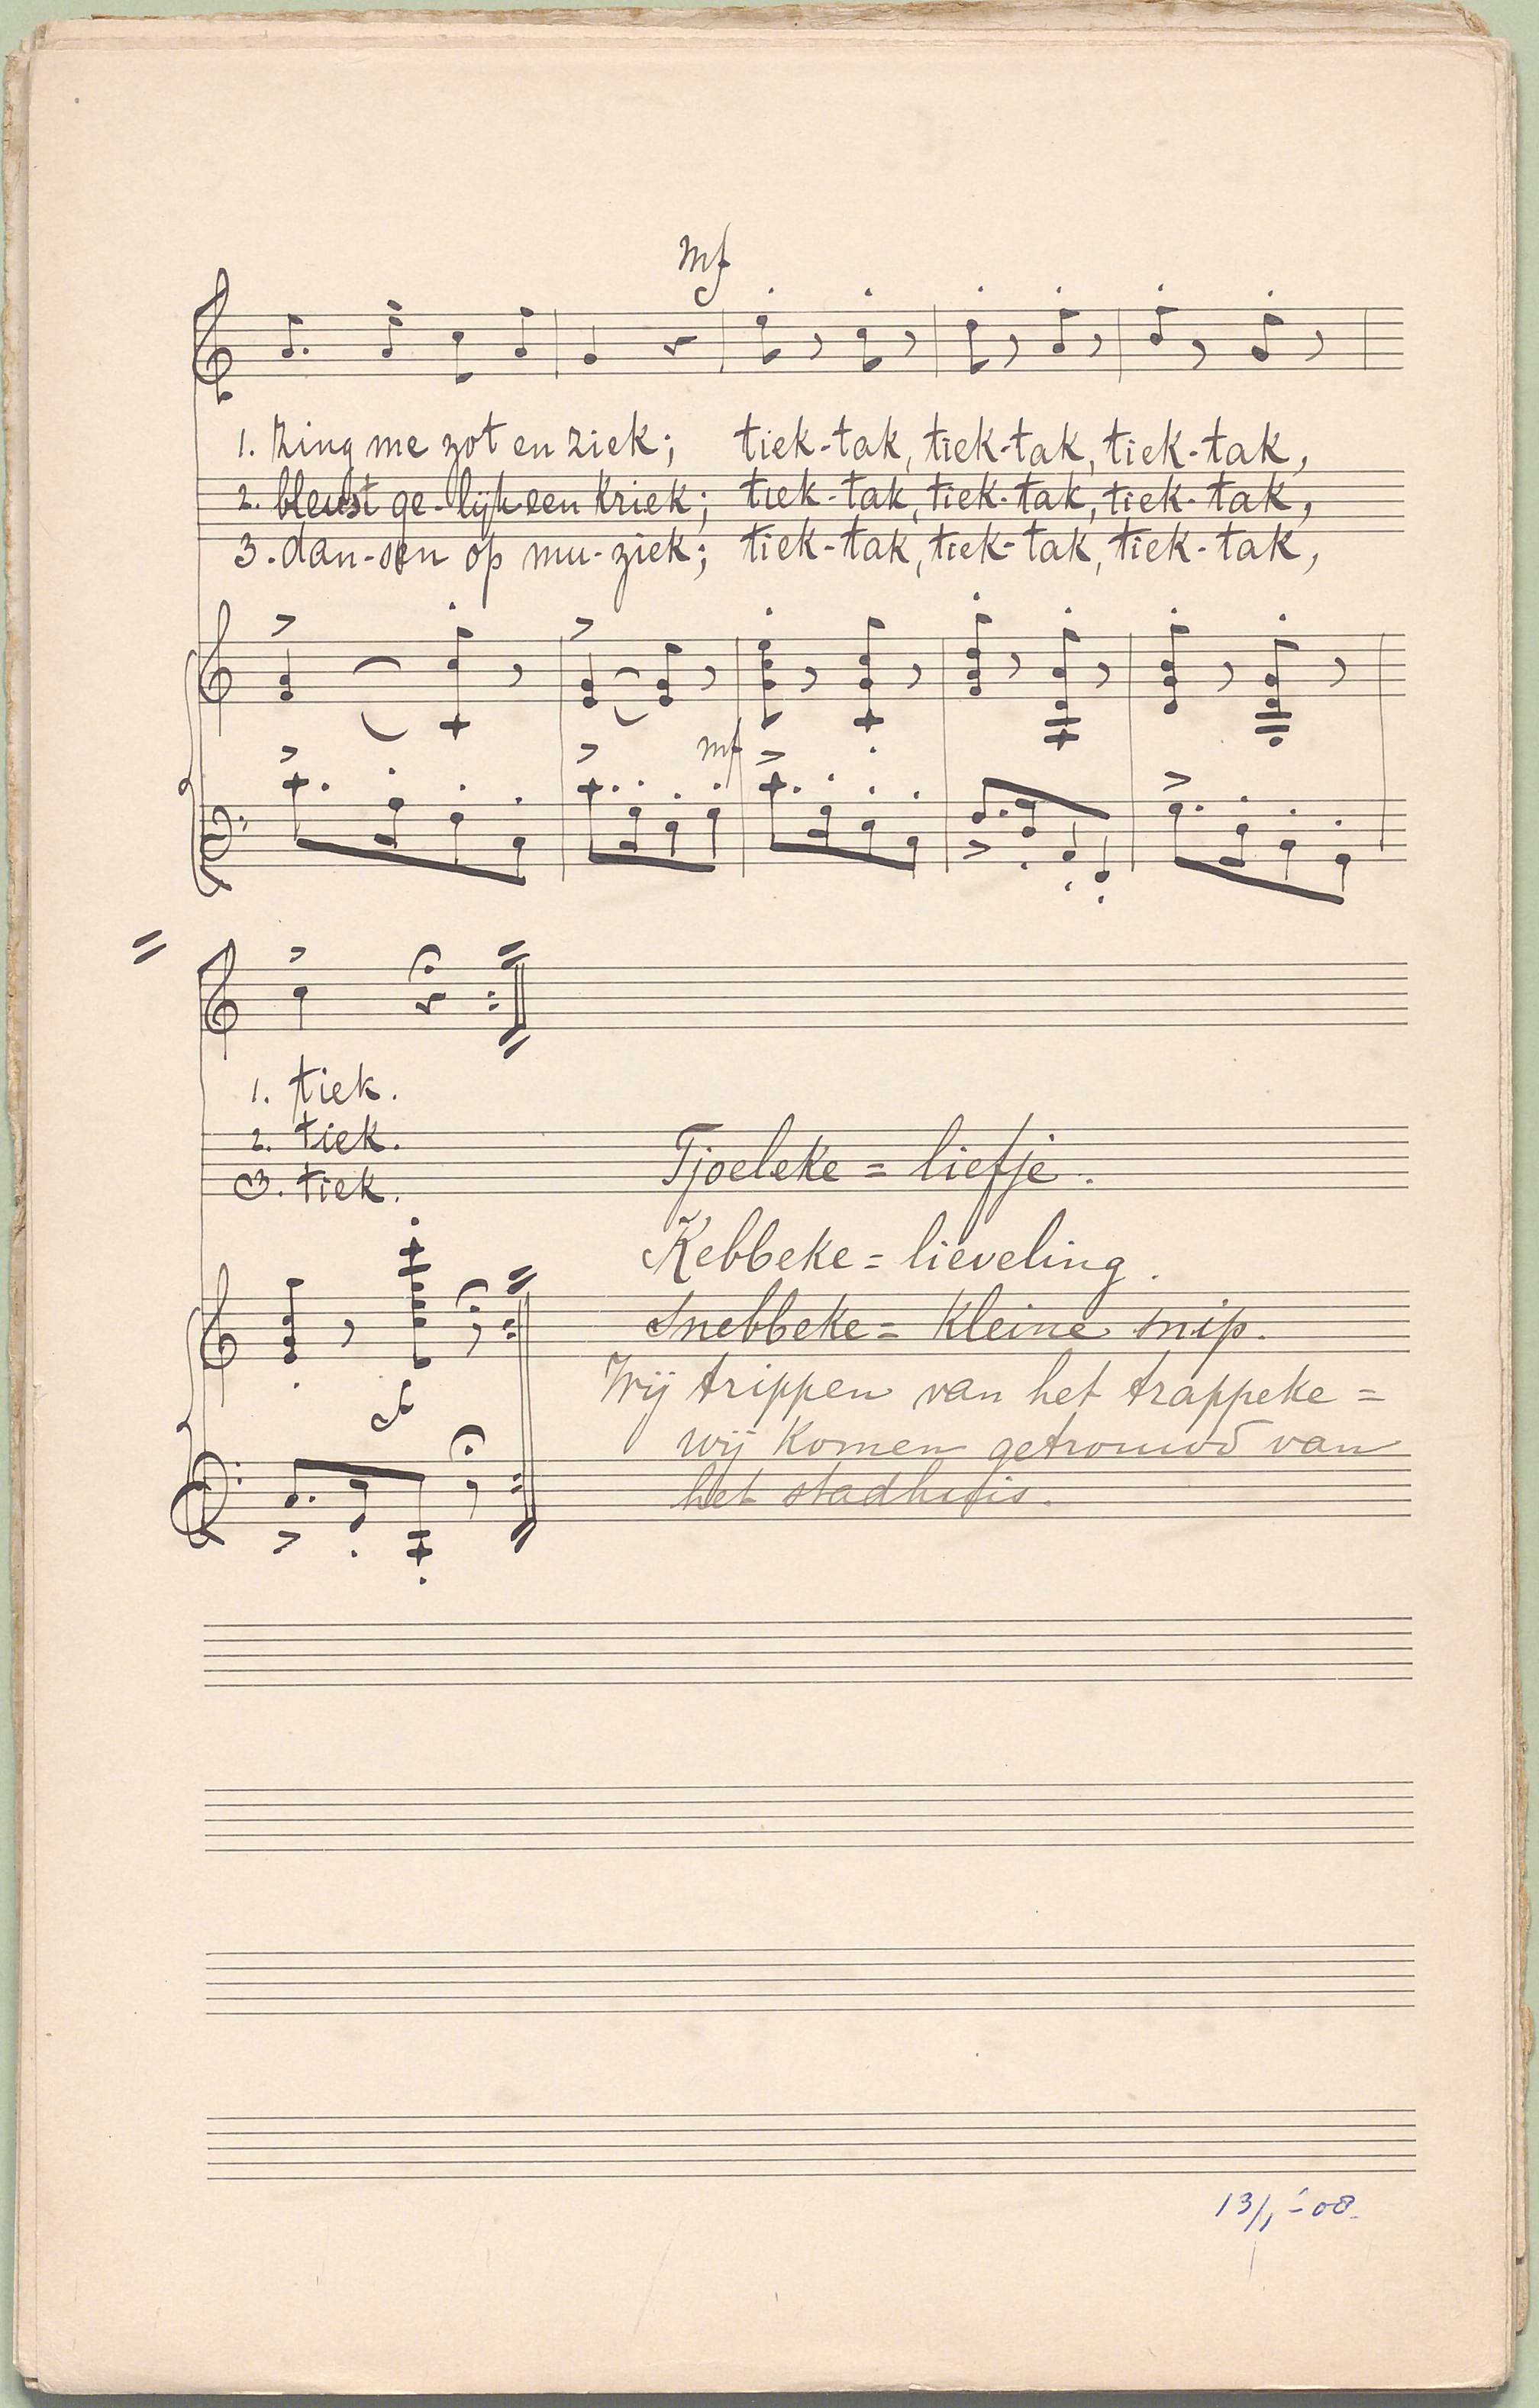 mf
1. Zing me zot en ziek; tiek-tak, tiek-tak, tiek-tak,
2. bleust ge-lijk een kriek; tiek-tak, tiek-tak, tiek-tak,
3. dan-sen op mu-ziek; tiek-tak, tiek-tak, tiek-tak,
mf
1. tiek.
2. tiek.
3. tiek.
Tjoeleke = liefje.
Kebbeke = lieveling.
Snebbeke = kleine snip.
Wij trippen van het trappeke =
wij komen getrouwd van
het stadhuis.